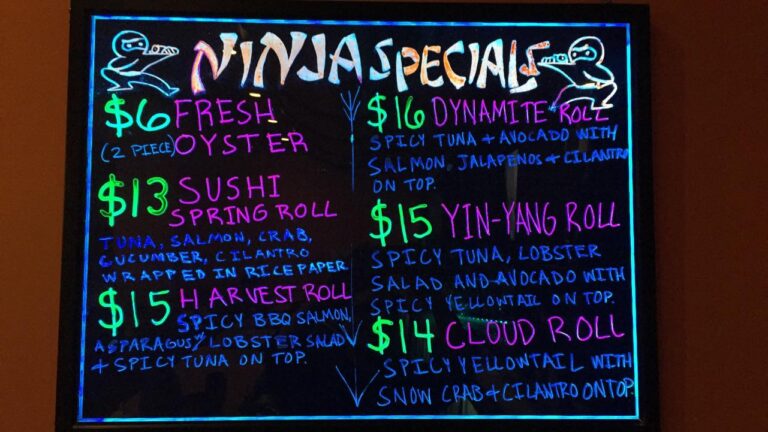 NINJA SPECIALS
$6 FRESH
(2 PIECE) OYSTER
$13 SUSHI
SPRING ROLL
TUNA, SALMON, CRAB,
CUCUMBER, CILANTRO
WRAPPED IN RICE PAPER
$15 HARVEST ROLL
SPICY BBQ SALMON,
ASPARAGUS, LOBSTER SALAD
+ SPICY TUNA ON TOP.
$16 DYNAMITE ROLL
SPICY TUNA + AVOCADO WITH
SALMON, JALAPENOS + CILANTRO
ON TOP.
$15 YIN-YANG ROLL
SPICY TUNA, LOBSTER
SALAD AND AVOCADO WITH
SPICY YELLOWTAIL ON TOP.
$14 CLOUD ROLL
SPICY YELLOWTAIL WITH
SNOW CRAB + CILANTRO ON TOP.